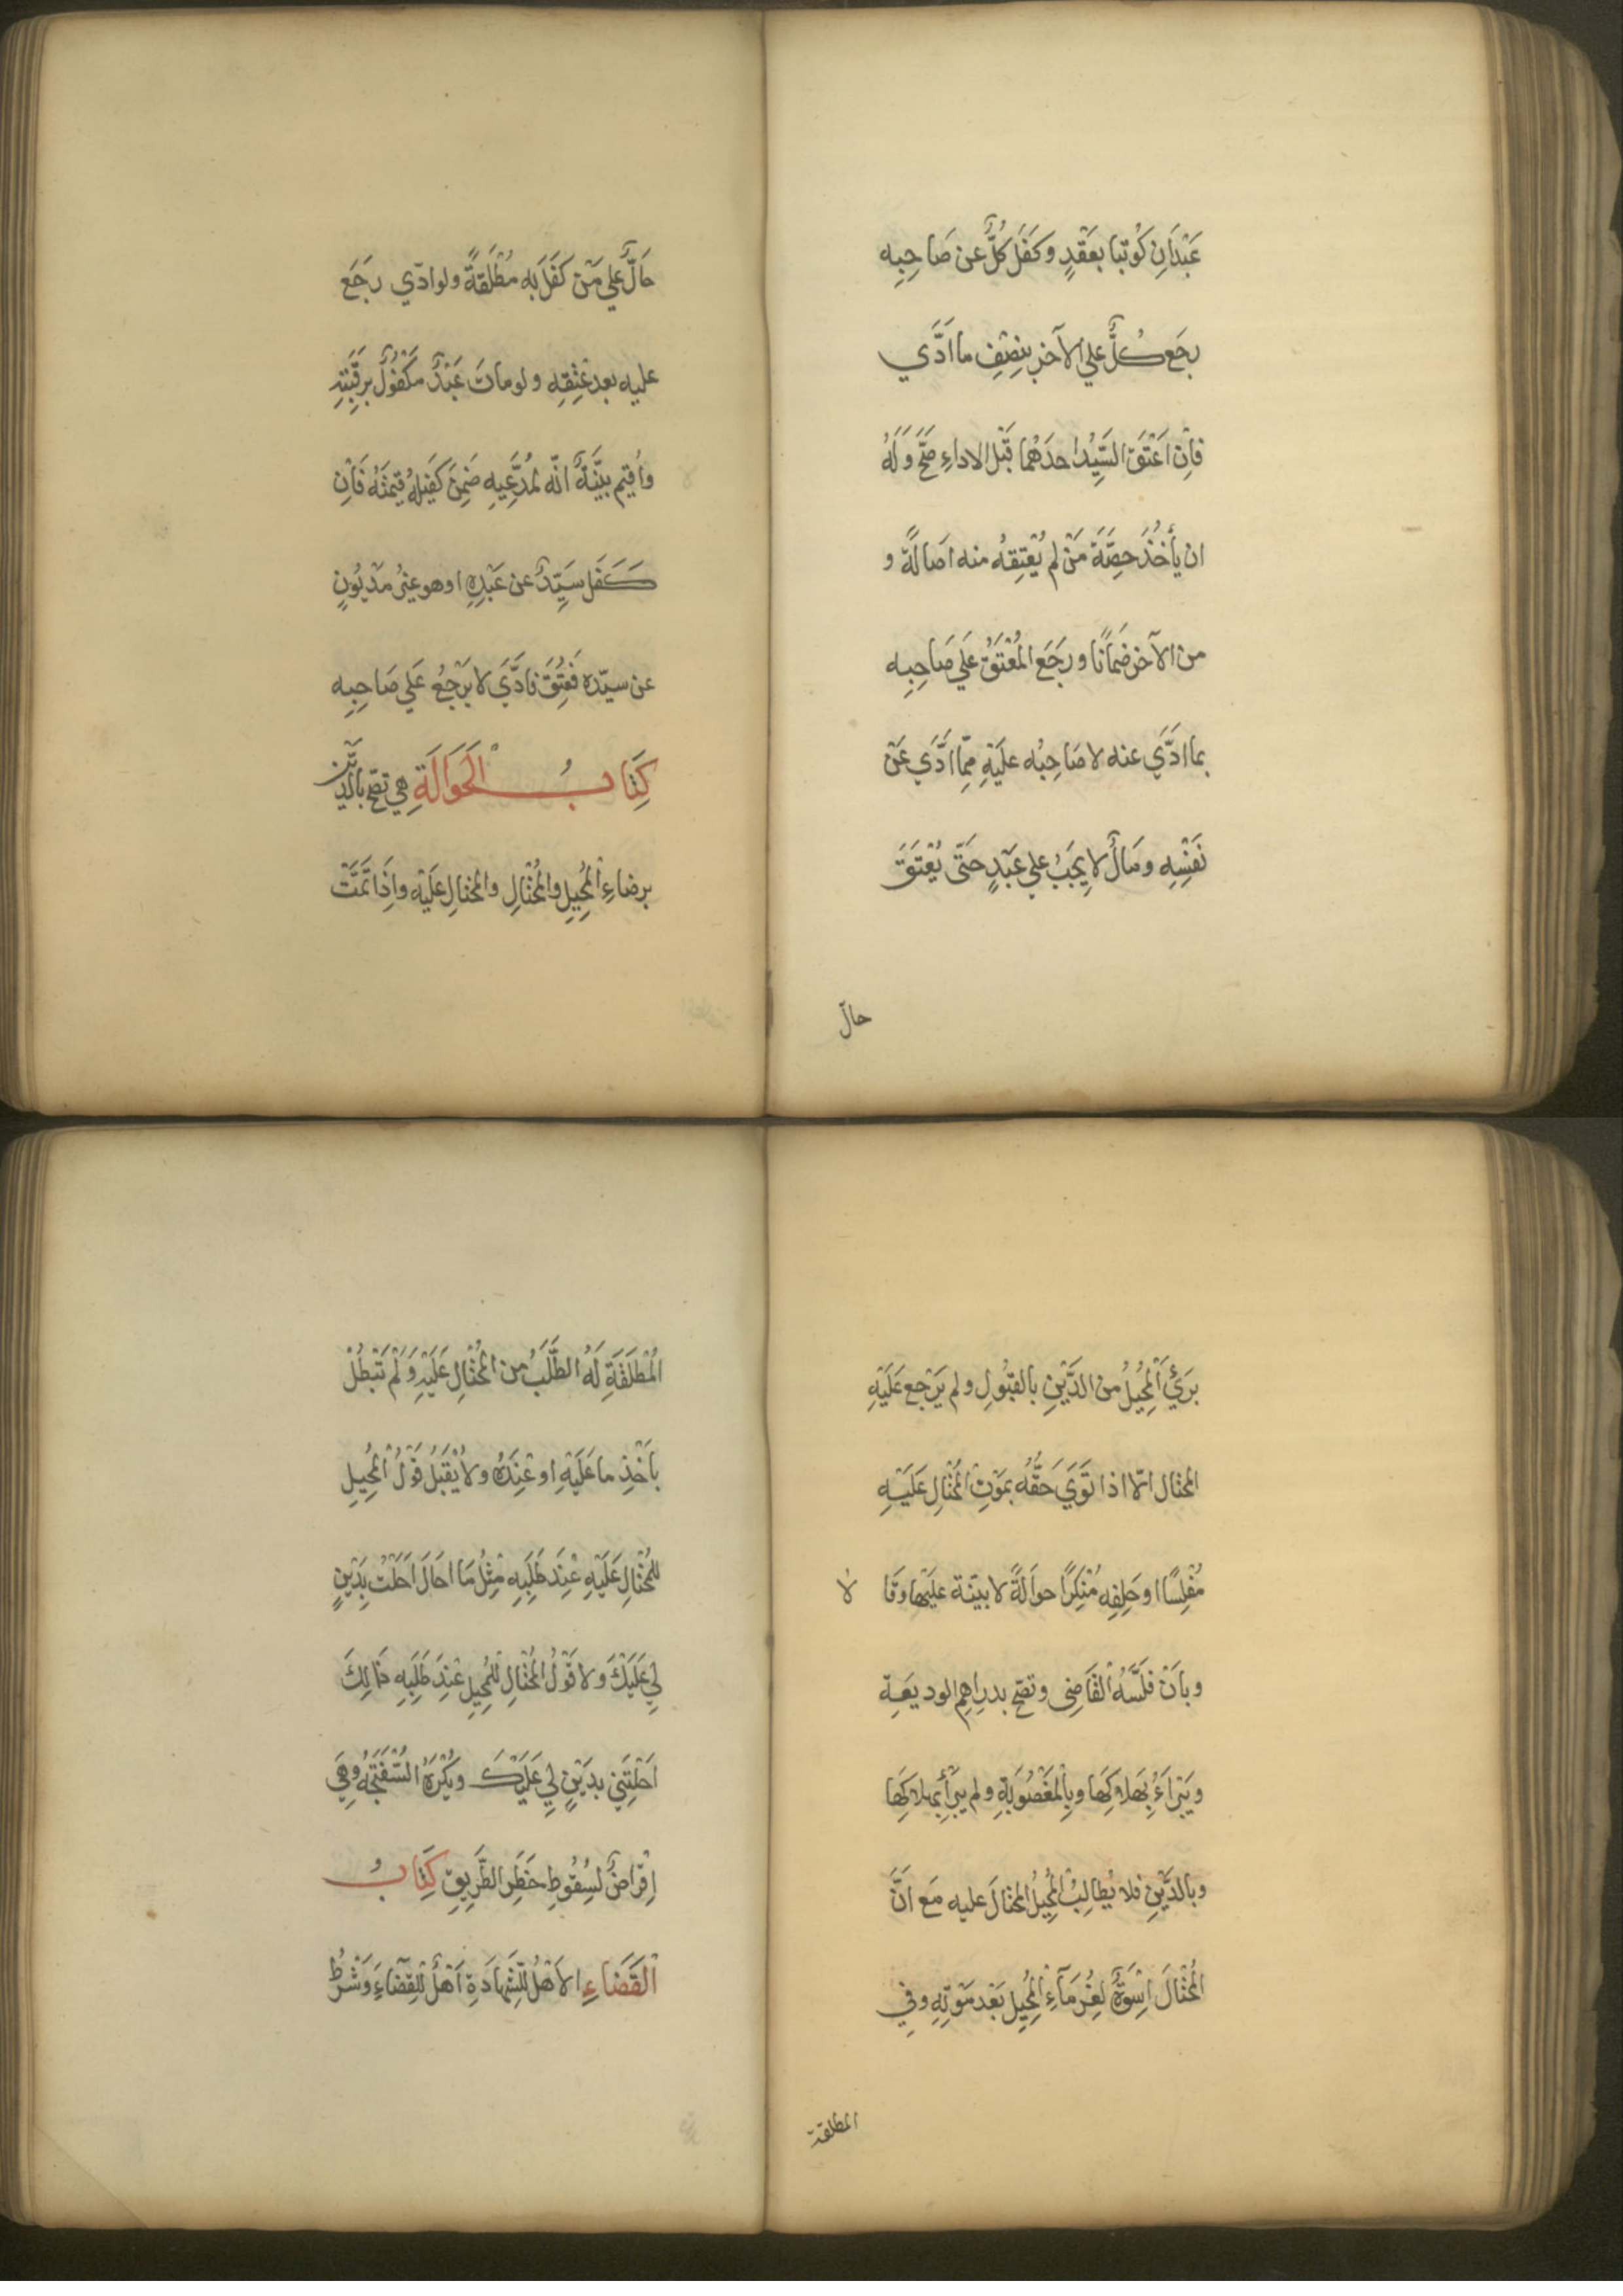 عَبْدَانِ كُوتبا بعَقْدٍ وكَفَلَ كُلٌّ عن صَاحِبِه
رجَع كُلٌّ علي الآخرِ بنِصْفِ ما اَدَّي
فاِن اَعْتَقَ السَّيِّدُ احدَهُما قَبْلَ الاداءِ صَحَّ وَلَهُ
ان يأخُذَ حِصَّةَ مَنْ لم يُعْتِقهُ منه اصَالَةً و
من الآخر ضَمَانًا ورَجَع المُعْتَقُ عَلي صَاحِبِه
بما ادَّي عنه لا صَاحِبُه علَيْهِ مِمّا اَدَّي عَنْ
نَفْسِه ومَالٌ لا يَجِبُ علي عَبْدٍ حَتّى يُعْتَقَ
حالّ
حَالٌّ علي مَنْ كَفَلَ به مُطْلَقَةً ولو ادّي رجَعَ
عليه بعد عِتْقِه ولو ماتَ عَبْدٌ مَكْفُولٌ برقَبَتِهِ
واُقيم بيِّنَةٌ انّه لمُدَّعِيهِ ضَمِنَ كَفيلُهُ قِيمَتَهُ فَاِن
كَفَل سَيِّدٌ عن عَبْدِهِ اوهو غيرُ مَدْيُونٍ
عن سيّده فَعُتِقَ فادَّيَ لا يَرْجِعُ عَلي صَاحِبِهِ
كِتَابُ الحَوَالَةِ هي تصحّ بالدَّيْن
برضاءِ المُحِيلِ والمُحْتَالِ والمُحْتالِ عَلَيْه واِذَا تَمَّتْ
بَرِئَ المُحِيلُ من الدَّيْنِ بالقَبُولِ ولم يَرْجع عَلَيْهِ
المحتال الّا اذا تَوَيَ حَقُّهُ بمَوْتِ المُحْتَالِ عَلَيْهِ
مُفْلِسًا او حَلِفِه مُنْكِرًا حوَالَةً لا بيّنة عليْها وقَا لا
وبأَنْ فَلَّسَهُ القَاضِى وتصحّ بدرِاهِم الوديعَةِ
ويَبْراَءُ بِهَلاكِهَا وبالمَغْصُوبَةِ ولم يبرأ بهلاكِهَا
وبالدَّيْنِ فلا يُطالِبُ المُحِيلُ المحتالَ عليه مَع اَنَّ
المُحْتَالَ اسْوَةٌ لغُرَمَآءِ المُحِيلِ بَعْد مَوْتِهِ وفي
المطلقة
المُطْلَقَةِ لَهُ الطَّلَبُ من المُحْتَالِ عَلَيْهِ وَلَمْ تَبْطُلْ
بأَخْذِ ما عَلَيْهِ او عِنْدَهُ ولا يُقْبَلُ قَوْلُ المُحِيلِ
للمُحْتَالِ عَلَيْهِ عِنْدَ طَلَبِهِ مِثْلُ مَا احَالَ احَلْتُ بدَيْنٍ
لي عَلَيْكَ ولا قَوْلُ المُحْتَالِ للمُحِيلِ عِنْدَ طَلَبِهِ ذَالِكَ
احَلْتَنِي بدَيْنٍ لِي عَلَيْكَ ويُكْرَهُ السُّفْتَجَهُ وهِيَ
اِقْرَاضٌ لسُقُوطِ خَطَرِ الطَّرِيقِ كِتَابُ
القَضَاءِ الاَهْلُ للشَّهادَةِ اَهْلٌ للقضَاءِ وَشَرْطُ